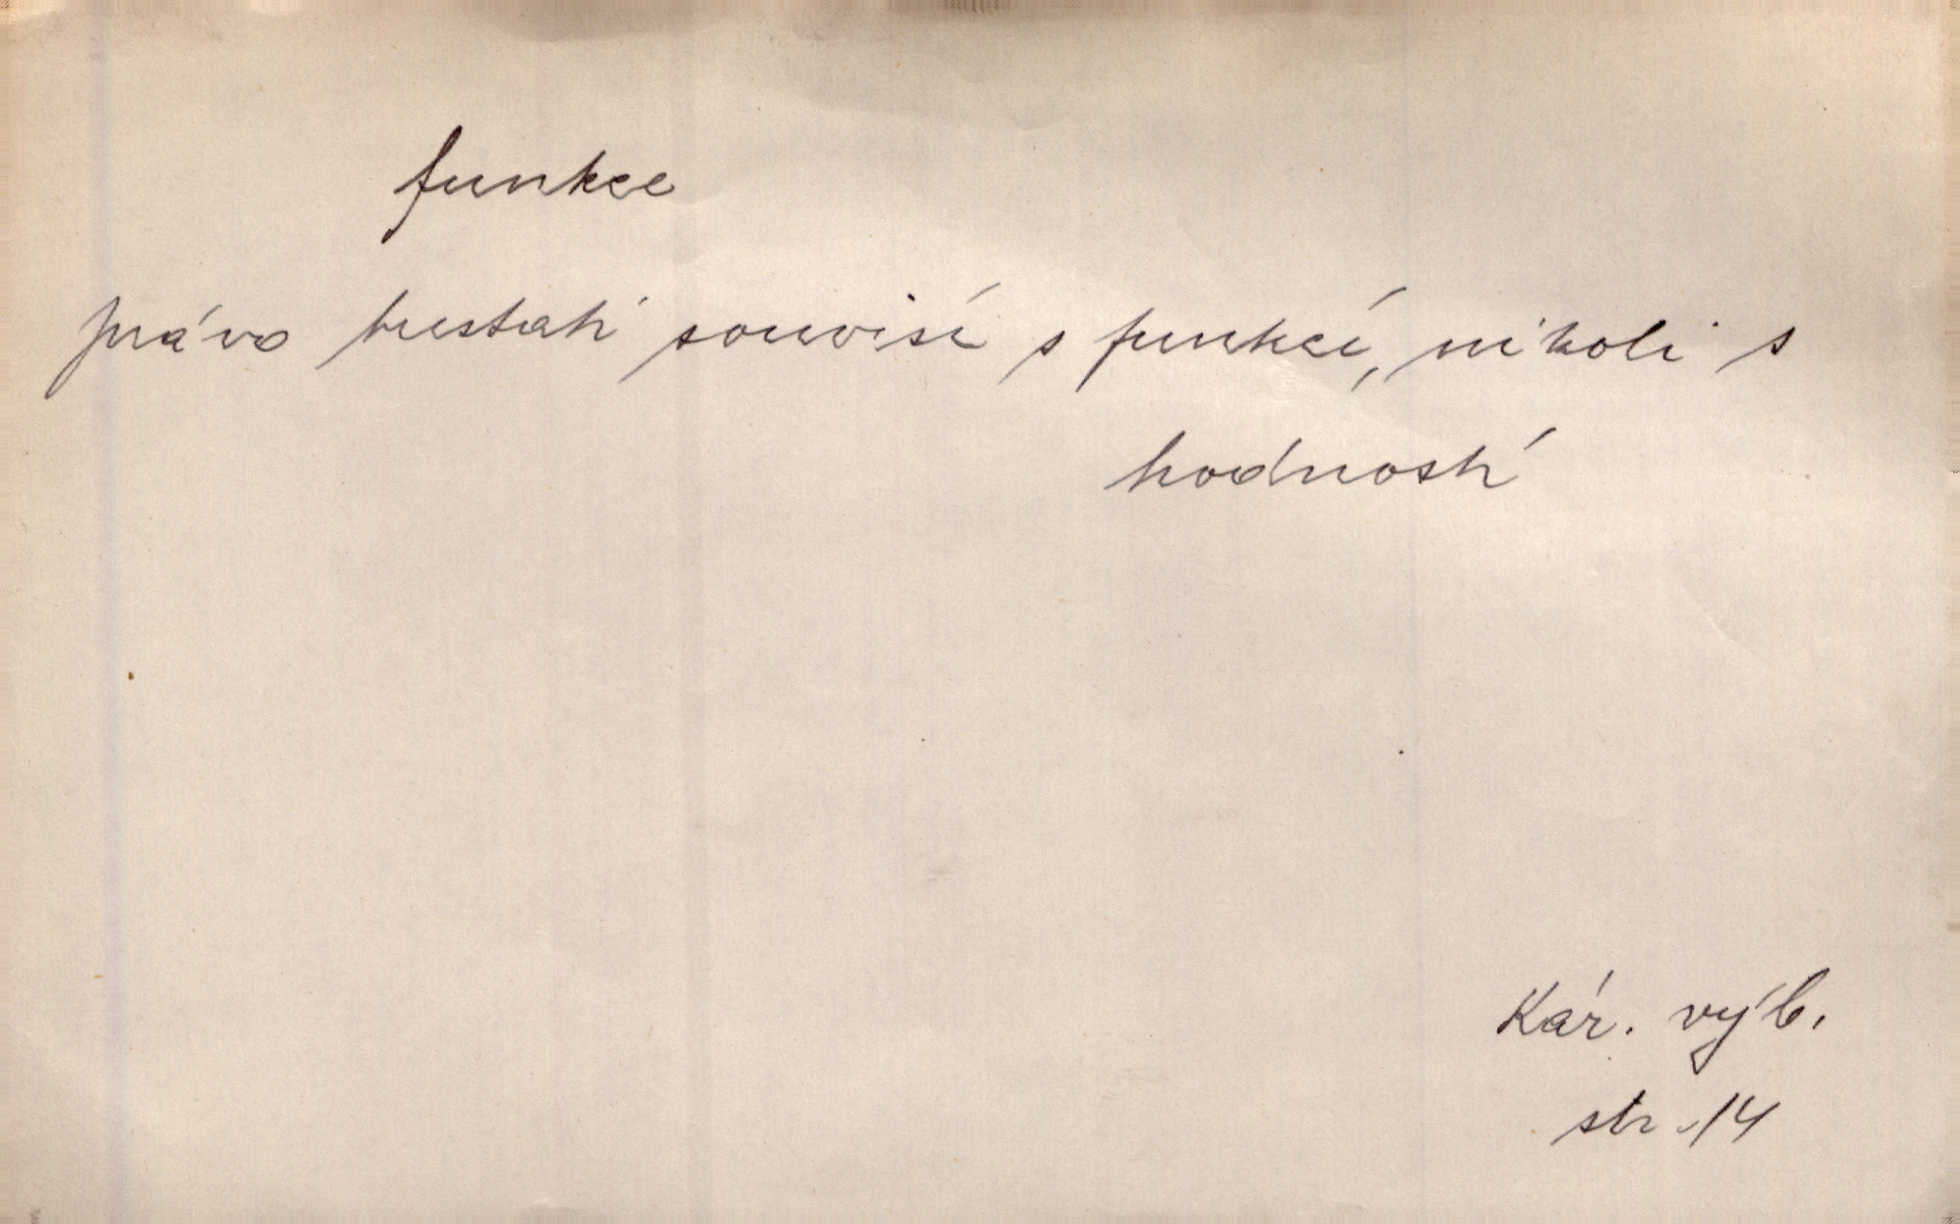 funkce
právo trestati souvisí s funkcí, nikoli s
hodností
Kár. výb.
str. 14